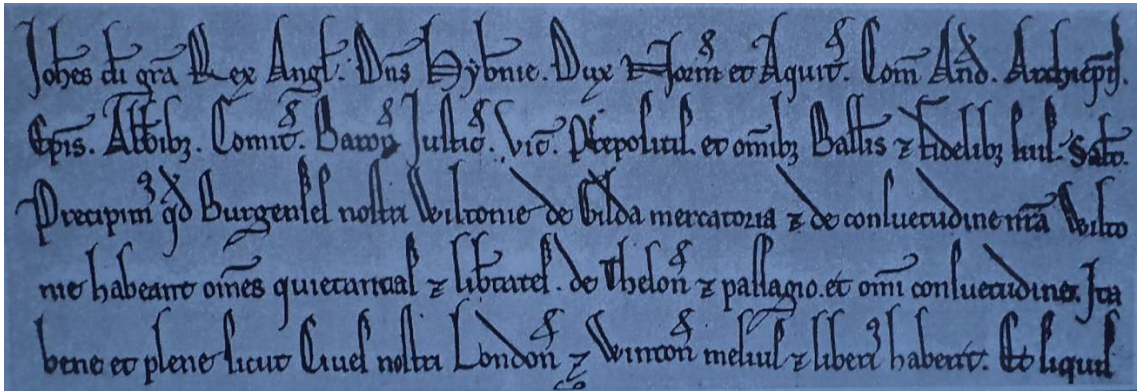 Joh̄es di gr̄a Rex Angl̄. Dn̄s Hyb̄nie. Dux Norm̄ et Aquit̄. Com̄ And̄. Archiep̄is.
Ep̄is. Abb̄ibꝫ. Comit̄. Baron̄ Justic̄. Vic̄. P̄repositis. et om̄ibꝫ Ball̄is ⁊ fidelibꝫ suis. Sal̄t.
Precipimꝰ qd̄ Burgenses nostri Wiltonie de Gilda mercatoria ⁊ de consuetudine nr̄a Wilto
nie habeant om̄es quietantias ⁊ lib̄tates. de Thelon̄ ⁊ passagio. et om̄i consuetudine. Ita
bene et plene sicut Cives nostri London̄ ⁊ Winton̄ melius ⁊ liberiꝰ habent. Et siquis